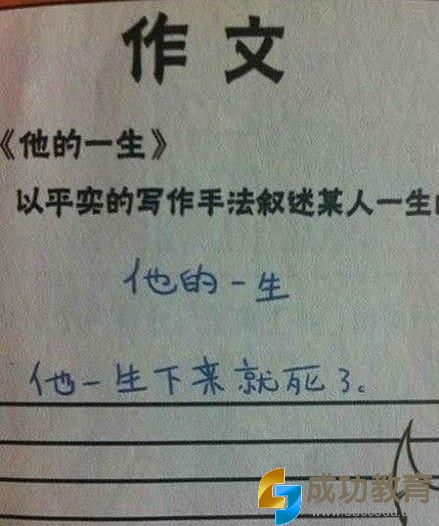 作文
《他的一生》
以平实的写作手法叙述某人一生
他的一生
他一生下来就死了。
成功教育